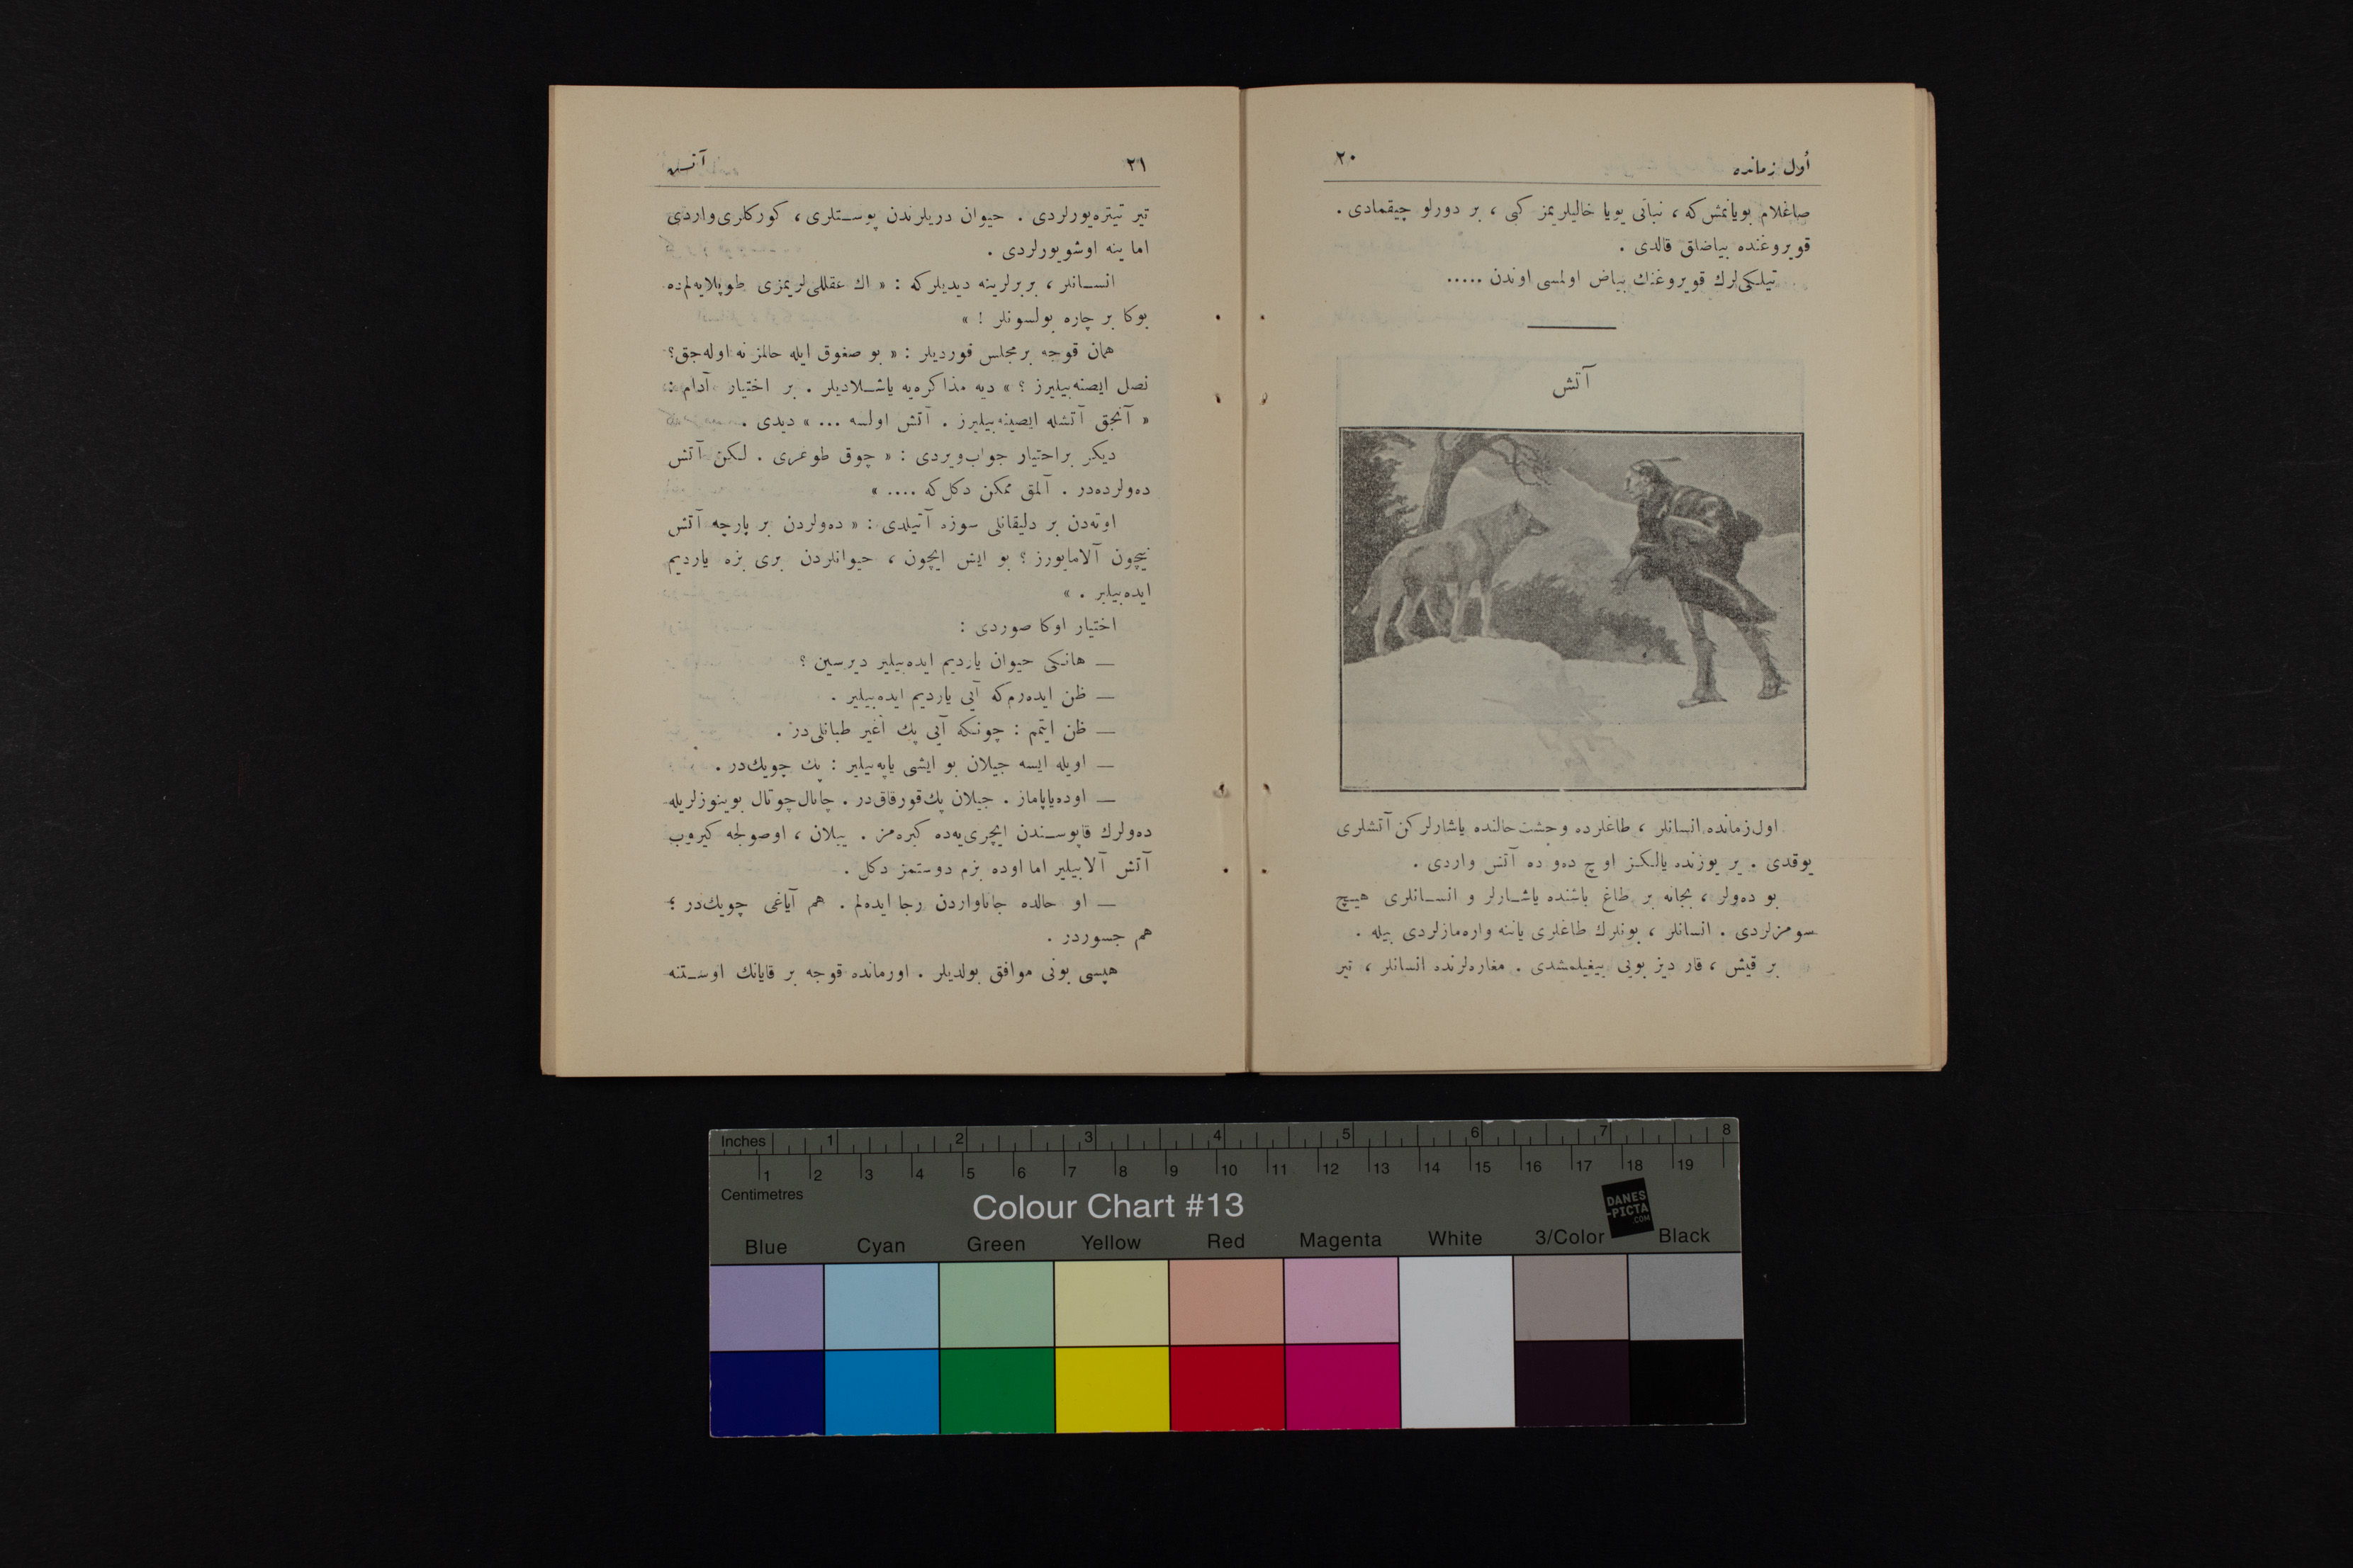 أول زمانده
٢٠
صاغلام بویانمش‌که ، نباتی بویا خالیلریمز کبی ، بر دورلو چیقمادی .
قویروغنده بیاضلق قالدی .
تیلکی‌لرك قویروغنك بیاض اولمسی اوندن .....
آتش
اول زمانده انسانلر ، طاغلرده وحشت حالنده یاشارلرکن آتشلری
یوقدی . یر یوزنده یالکز اوچ ده‌وده آتش واردی .
بو ده‌ولر ، بر طاغ باشنده یاشارلر و انسانلری هیچ
سومزلردی . انسانلر ، بونلرك طاغلری یاننه واره‌مازلردی بیله .
بر قیش ، قار دیز بویی ییغیلمشدی . مغاره‌لرنده انسانلر ، تیر
٢١
آتش
تیر تیتره‌یورلردی . حیوان دریلرندن پوستلری ، کورکلری واردی
اما ینه اوشویورلردی .
انسانلر ، بربرلرینه دیدیلرکه : « اك عقللی‌لریمزی طوپلایه‌لم‌ده
بوکا بر چاره بولسونلر ! »
همان قوجه برمجلس قوردیلر : « بو صغوق ایله حالمز نه اوله‌جق؟
نصل ایصنه‌بیلیرز ؟ » دیه مذاکره‌یه باشلادیلر . بر اختیار آدام :
« آنجق آتشله ایصینه‌بیلیرز . آتش اولسه ... » دیدی .
دیکر براختیار جواب‌ویردی : « چوق طوغری . لکن آتش
ده‌ولرده‌در . آلمق ممکن دکل‌که .... »
اوته‌دن بر دلیقانلی سوزه آتیلدی : « ده‌ولردن بر پارچه آتش
نیچون آلامایورز ؟ بو ایش ایچون ، حیوانلردن بری بزه یاردیم
ایده‌بیلیر . »
اختیار اوکا صوردی :
— هانکی حیوان یاردیم ایده‌بیلیر دیرسین ؟
— ظن ایده‌رم‌که آیی یاردیم ایده‌بیلیر .
— ظن ایتمم : چونکه آیی پك آغیر طبانلی‌در .
— اویله ایسه جیلان بو ایشی یاپه‌بیلیر : پك چویك‌در .
— اوده‌یاپاماز . جیلان پك‌قورقاق‌در . چاتال‌چوتال بوینوزلریله
ده‌ولرك قاپوسندن ایچری‌یه‌ده کیره‌مز . ییلان ، اوصولجه کیروب
آتش آلابیلیر اما اوده بزم دوستمز دکل .
— او حالده جاناواردن رجا ایده‌لم . هم آیاغی چویك‌در ؛
هم جسوردر .
هپسی بونی موافق بولدیلر . اورمانده قوجه بر قایانك اوستنه
Inches 1 2 3 4 5 6 7 8
1 2 3 4 5 6 7 8 9 10 11 12 13 14 15 16 17 18 19
Centimetres
Colour Chart #13
DANES
-PICTA
.COM
Blue Cyan Green Yellow Red Magenta White 3/Color Black